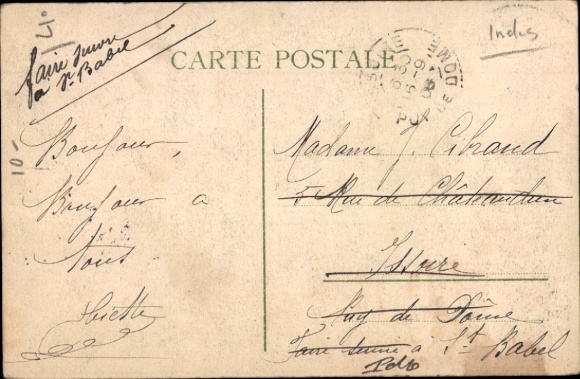 Faire suivre
a St Babel
41.
Indes
CARTE POSTALE
PUY DE DOME
10-
Bonjour,
Bonjour a
tous
Madame J. Cibrand
5 Rue de Châteaudun
Issoire
Puy de Dôme
Faire suivre à St Babel
PdD